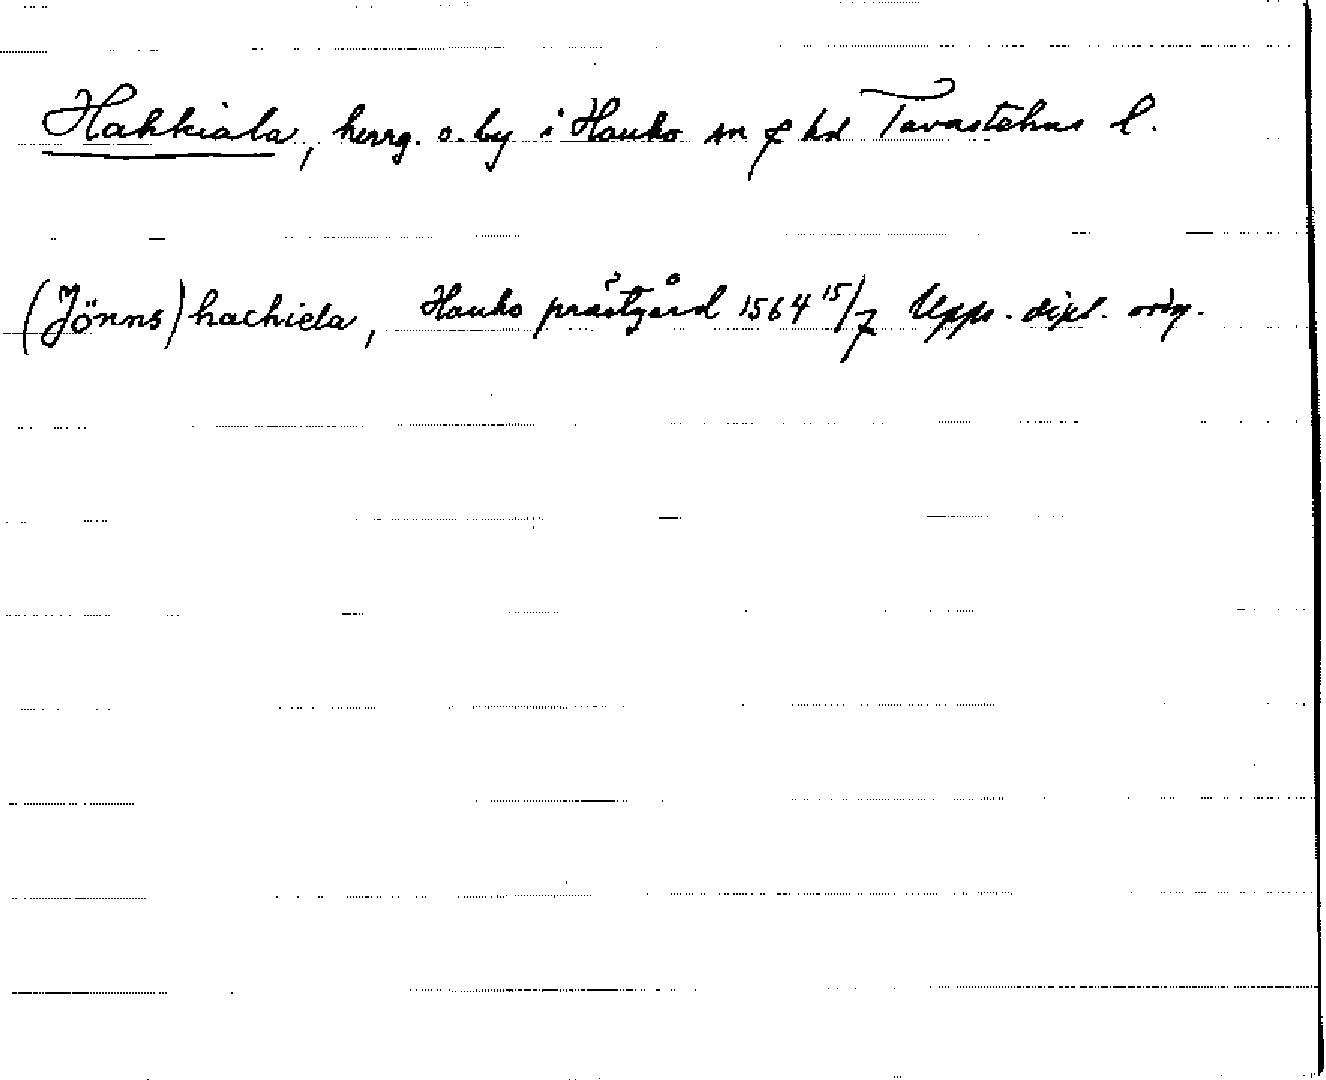 Hakkiala, herrg. o. by i Hauho sn & hd Tavastehus l.
(Jönns) hachiela, Hauho prästgård 1564 15/7 Upps. dipl. orig.